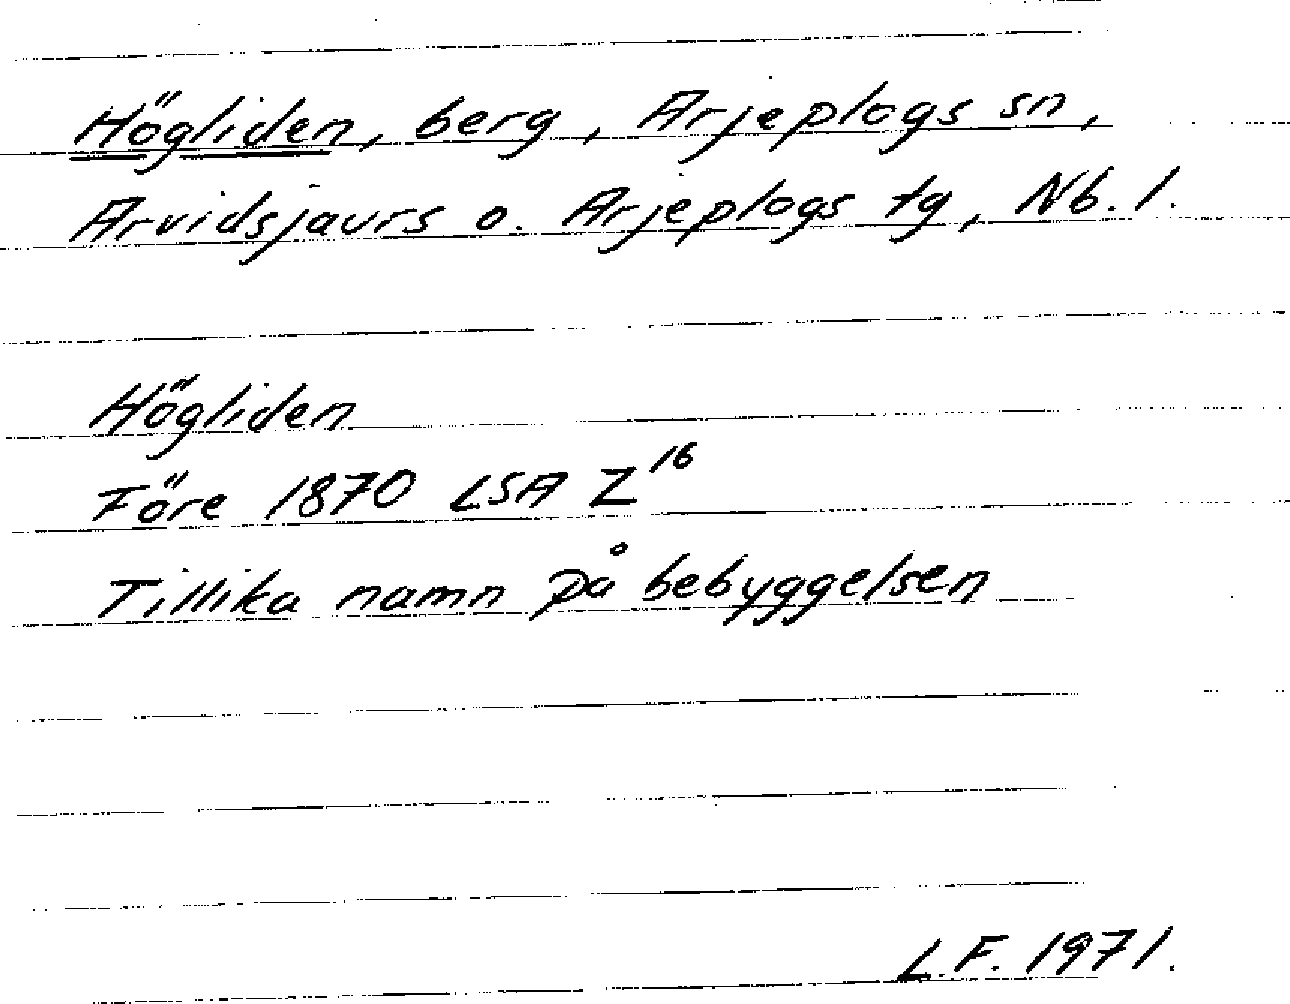 Högliden, berg, Arjeplogs sn,
Arvidsjaurs o. Arjeplogs tg, Nb. l.
Högliden
Före 1870 LSA Z16
Tillika namn på bebyggelsen
L.F. 1971.